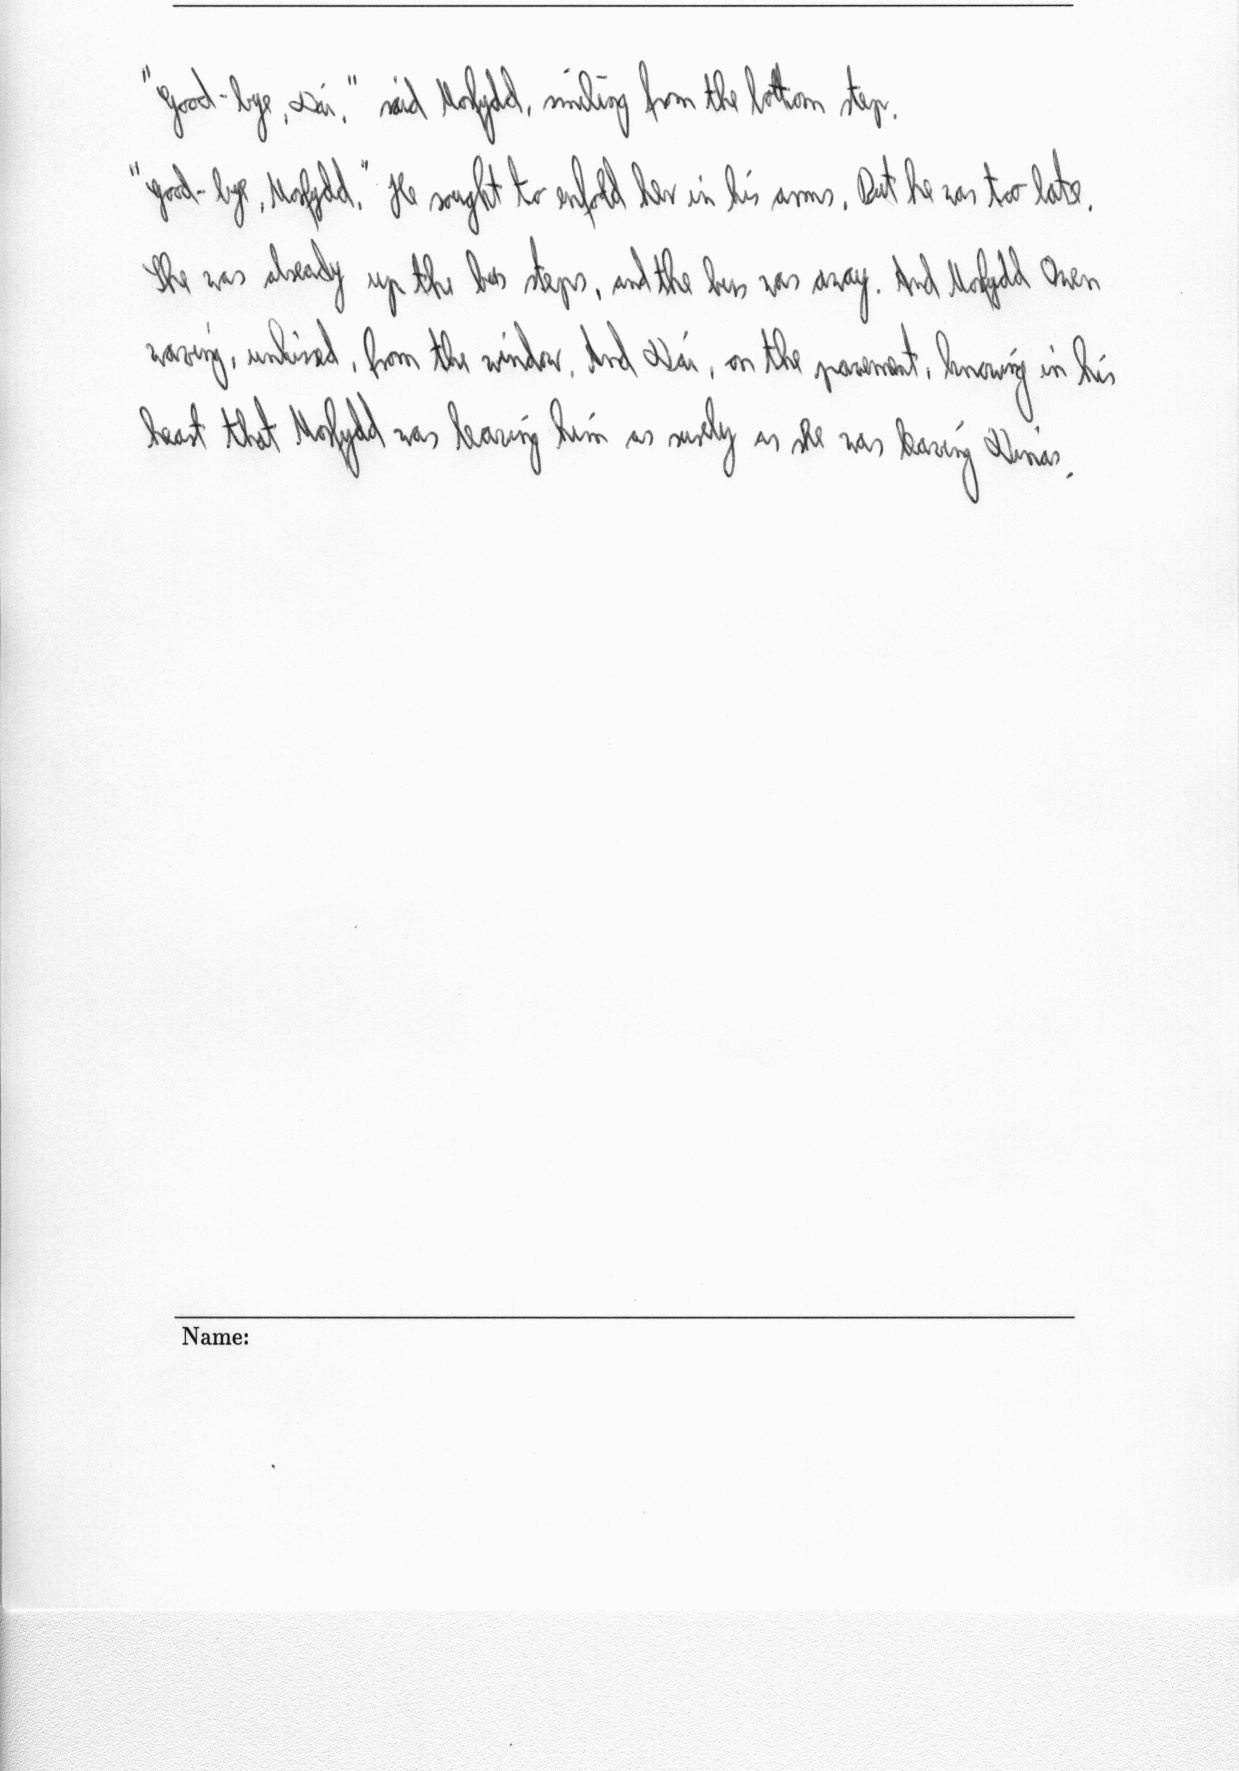 "Good-bye, Dai," said Morfydd, smiling from the bottom step.
"Good-bye, Morfydd." He sought to enfold her in his arms. But he was too late.
She was already up the bus steps, and the bus was away. And Morfydd Owen
waving, unkissed, from the window. And Dai, on the pavement, knowing in his
heart that Morfydd was leaving him as surely as she was leaving Dinas.
Name: